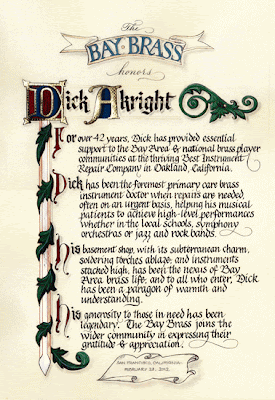 The
BAY BRASS
honors
Dick Akright
For over 42 years, Dick has provided essential
support to the Bay Area & national brass player
communities at the thriving Best Instrument
Repair Company in Oakland, California.
Dick has been the foremost primary care brass
instrument doctor when repairs are needed,
often on an urgent basis, helping his musical
patients to achieve high-level performances
whether in the local schools, symphony
orchestras or jazz and rock bands.
His basement shop, with its subterranean charm,
soldering torches ablaze, and instruments
stacked high, has been the nexus of Bay
Area brass life; and to all who enter, Dick
has been a paragon of warmth and
understanding.
His generosity to those in need has been
legendary. The Bay Brass joins the
wider community in expressing their
gratitude & appreciation.
SAN FRANCISCO, CALIFORNIA
FEBRUARY 28, 2012